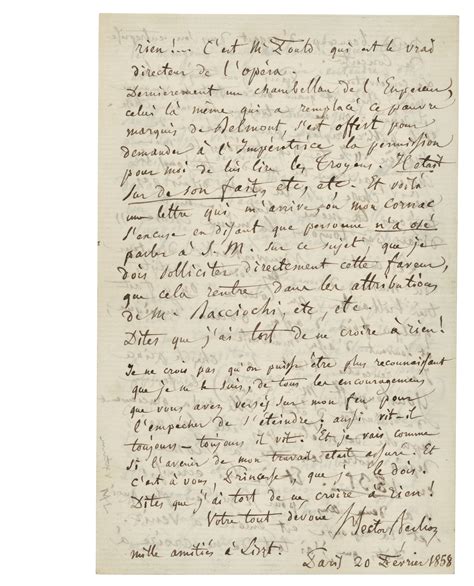 rien... C'est Mr Fould qui est le vrai
directeur de l'opéra.
Dernièrement un chambellan de l'Empereur,
celui là même qui a remplacé ce pauvre
marquis de Belmont, s'est offert pour
demander à l'Impératrice la permission
pour moi de lui lire les Troyens. Il était
sûr de son fait, etc, etc. Et voilà
une lettre qui m'arrive où mon cornac
s'excuse en disant que personne n'a osé
parler à S. M. sur ce sujet, que je
dois solliciter directement cette faveur,
que cela rentre dans les attributions
de M. Bacciochi, etc, etc.
Dites que j'ai tort de ne croire à rien!
Je ne crois pas qu'on puisse être plus reconnaissant
que je ne le suis, de tous les encouragemens
que vous avez versés sur mon feu pour
l'empêcher de s'éteindre; aussi vit-il
toujours - toujours il vit. Et je vais comme
si l'avenir de mon travail était assuré. Et
c'est à vous, Princesse que je le dois.
Dites que j'ai tort de ne croire à rien!
Votre tout dévoué Hector Berlioz
mille amitiés à Liszt. Paris 20 Février 1858